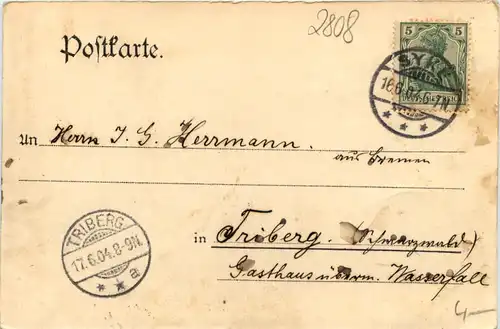 2808
Postkarte.
5 5
SYKE
16.6.04.6-7N.
* * *
An Herrn J. G. Herrmann.
aus Bremen
TRIBERG
17.6.04.8-9N.
* * a
in Triberg. (Schwarzwald)
Gasthaus überm. Wasserfall